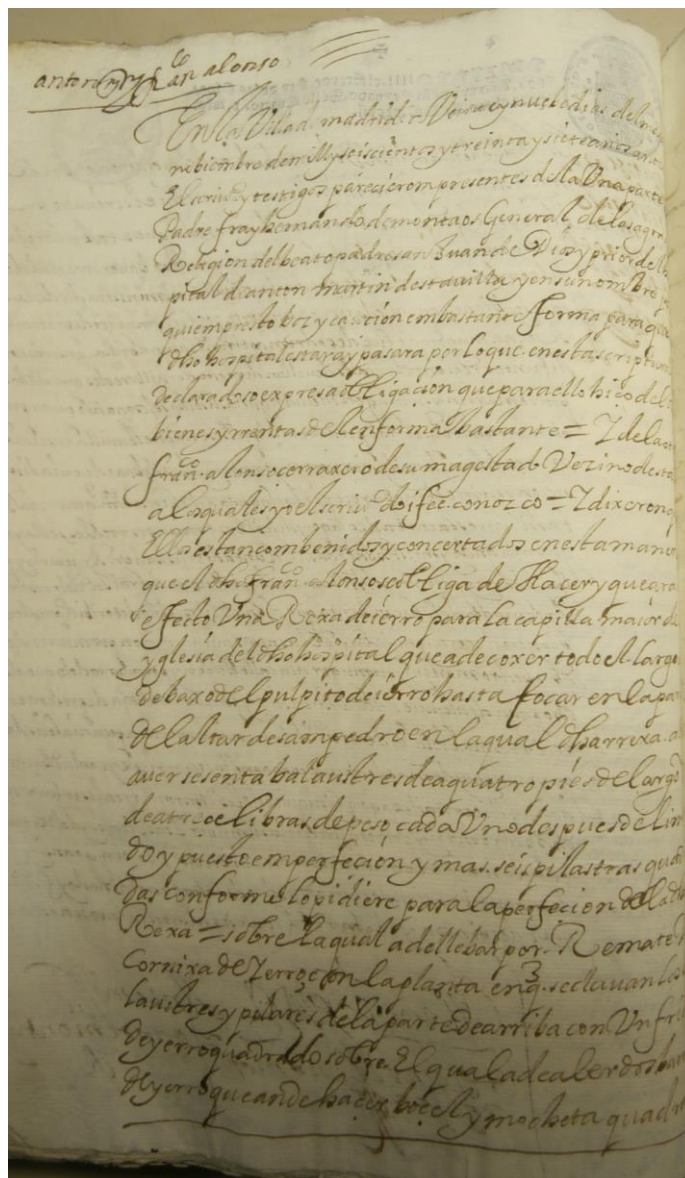 fran.co alonso
En la Villa de madrid a Veinte y nuebe dias del mes
nobiembre de mill y seiscientos y treinta y siete años ante
El scriu.o y testigos parecieron presentes de la Una parte
Padre fray hernando de montaos General de la sagra
Religion del beato padre san Juan de Dios y prior del
pital de anton martin desta villa y en su nombre
quien presto boz y caucion em bastante forma para que
dho hospital estara y pasara por lo que en esta scriptura
Declarado so expresa obligacion que para ello hiço de
bienes y rrentas del en forma bastante = Y de la ot
fran.co alonso cerraxero de su magestad Vezino desta
a los quales yo el scriu.o doi fee conozco = Y dixeron q
Ellos estan combenidos y concertados en esta maner
que el dho fran.co alonso se obliga de Hacer y que ara
efecto Una Rexa de ierro para la capilla maior de
yglesia del dho hospital que a de coxer todo el largo
debaxo del pulpito de ierro hasta tocar en la pa
del altar de san pedro en la qual dha rrexa a
auer sesenta balaustres de a quatro pies de largo
de a treçe libras de peso cada Uno despues de lim
do y puesto em perfeción y mas seis pilastras quad
das conforme lo pidiere para la perfecion de la d
Rexa = sobre la qual a de llebar por Remate
Cornixa de Yerro con la planta en q. se clauan los
laustres y pilares de la parte de arriba con Un fri
de yerro quadrado sobre El qual a de auer dos ban
de yerro que an de hacer boçel y mocheta quadr